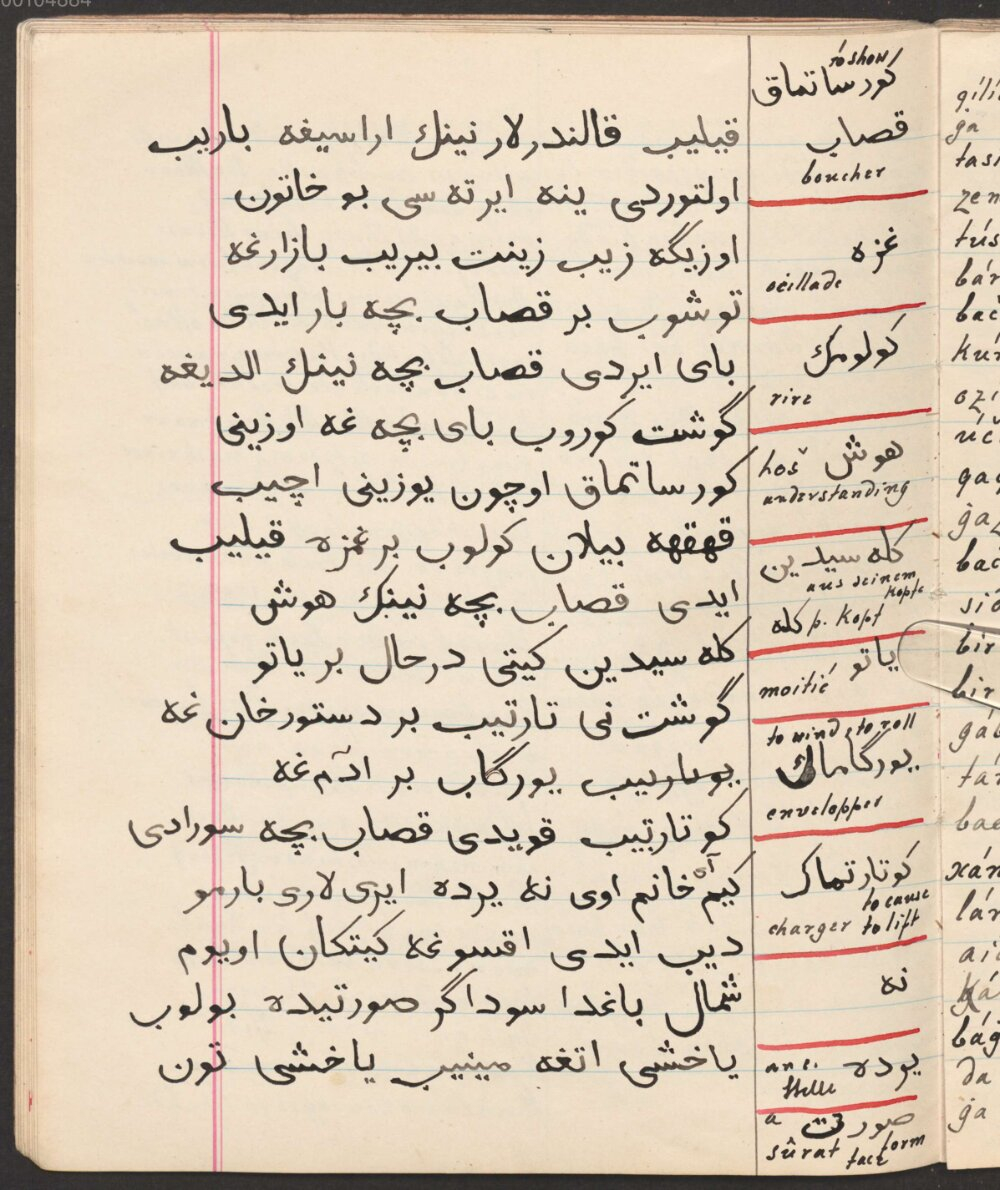 00104884
قیلیب قالندرلار نینك اراسیغه باریب
اولتوردی ینه ایرته سی بو خاتون
اوزیگه زیب زینت بیریب بازارغه
توشوب بر قصاب بچه بار ایدی
بای ایردی قصاب بچه نینك الدیغه
گوشت کوروب بای بچه غه اوزینی
کورساتماق اوچون یوزینی اچیب
قهقهه بیلان کولوب بر غمزه قیلیب
ایدی قصاب بچه نینك هوش
کله سیدین کیتی درحال بر یاتو
گوشت نی تارتیب بر دستورخان غه
یورگاب بر ادم غه
کوتارتیب قویدی قصاب بچه سورادی
خانم اوی نه یرده ایری لاری بارمو
دیب ایدی اقسوغه کیتکان اویوم
شمال باغدا سوداگر صورتیده بولوب
یاخشی اتغه مینیب یاخشی تون
to show
کورساتماق
قصاب
boucher
غزه
oeillade
کولومك
rire
هوش hoš
understanding
کله سیدین
aus seinem
Kopfe
کله p. Kopf
یاتو
moitié
to wind, to roll
یورگاماك
envelopper
کوتارتماك
to cause
charger to lift
نه
یرده
Stelle
صورت a
sûrat face form
gili
ġa
tasi
zen
tús
bár
bač
kúr
ozi
úč
qaq
ġaz
bač
sid
bir
bir
gáb
tár
bač
xán
lár
aid
ká
bág
da
ġa